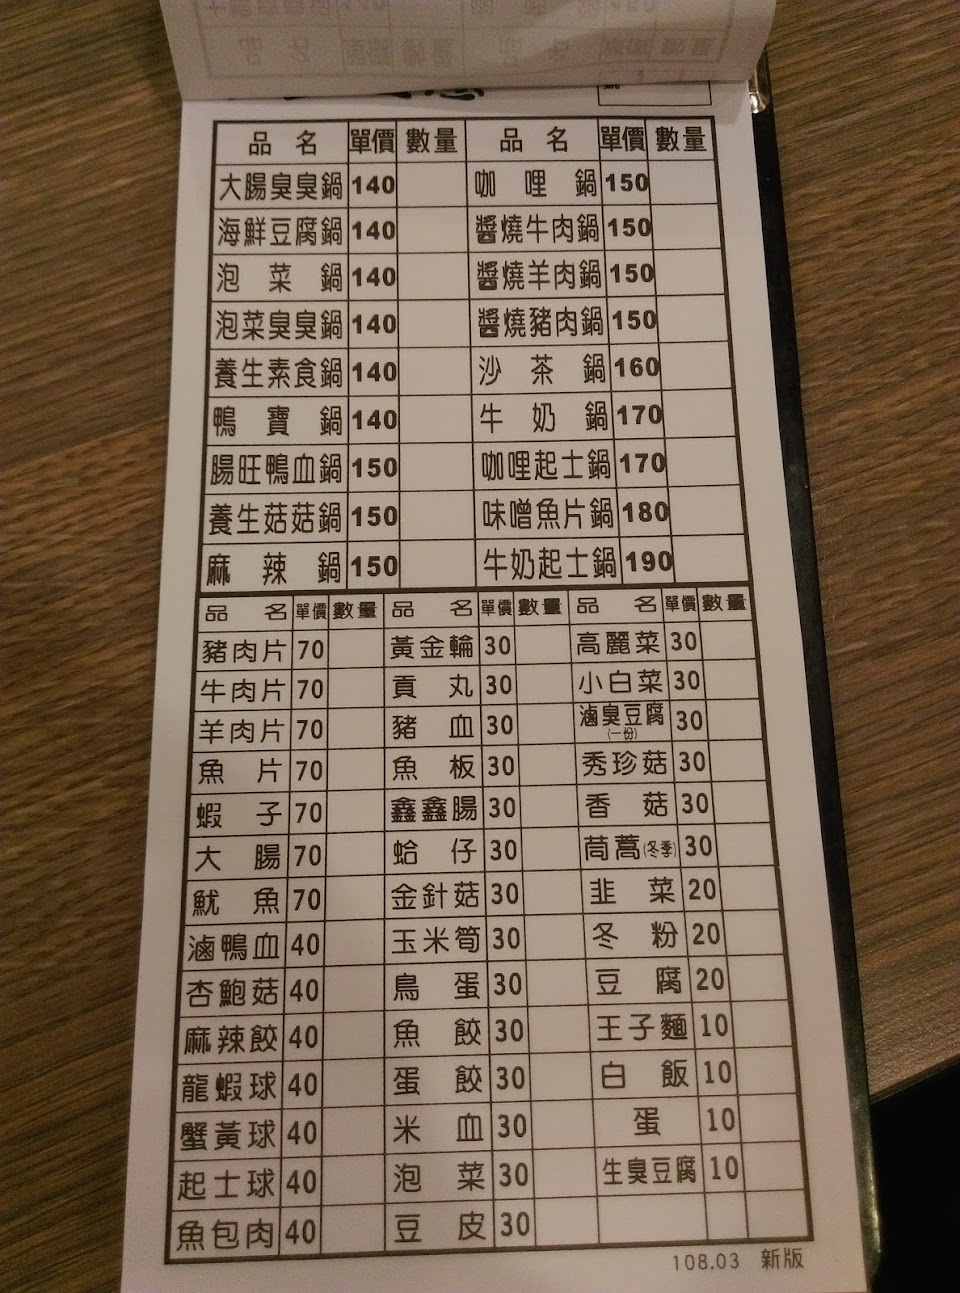 品 名 單價 數量 品 名 單價 數量
大腸臭臭鍋 140 咖哩鍋 150
海鮮豆腐鍋 140 醬燒牛肉鍋 150
泡菜鍋 140 醬燒羊肉鍋 150
泡菜臭臭鍋 140 醬燒豬肉鍋 150
養生素食鍋 140 沙茶鍋 160
鴨寶鍋 140 牛奶鍋 170
腸旺鴨血鍋 150 咖哩起士鍋 170
養生菇菇鍋 150 味噌魚片鍋 180
麻辣鍋 150 牛奶起士鍋 190
品 名 單價 數量 品 名 單價 數量 品 名 單價 數量
豬肉片 70 黃金輪 30 高麗菜 30
牛肉片 70 貢丸 30 小白菜 30
羊肉片 70 豬血 30 滷臭豆腐(一份) 30
魚片 70 魚板 30 秀珍菇 30
蝦子 70 鑫鑫腸 30 香菇 30
大腸 70 蛤仔 30 茼蒿(冬季) 30
魷魚 70 金針菇 30 韭菜 20
滷鴨血 40 玉米筍 30 冬粉 20
杏鮑菇 40 鳥蛋 30 豆腐 20
麻辣餃 40 魚餃 30 王子麵 10
龍蝦球 40 蛋餃 30 白飯 10
蟹黃球 40 米血 30 蛋 10
起士球 40 泡菜 30 生臭豆腐 10
魚包肉 40 豆皮 30
108.03 新版